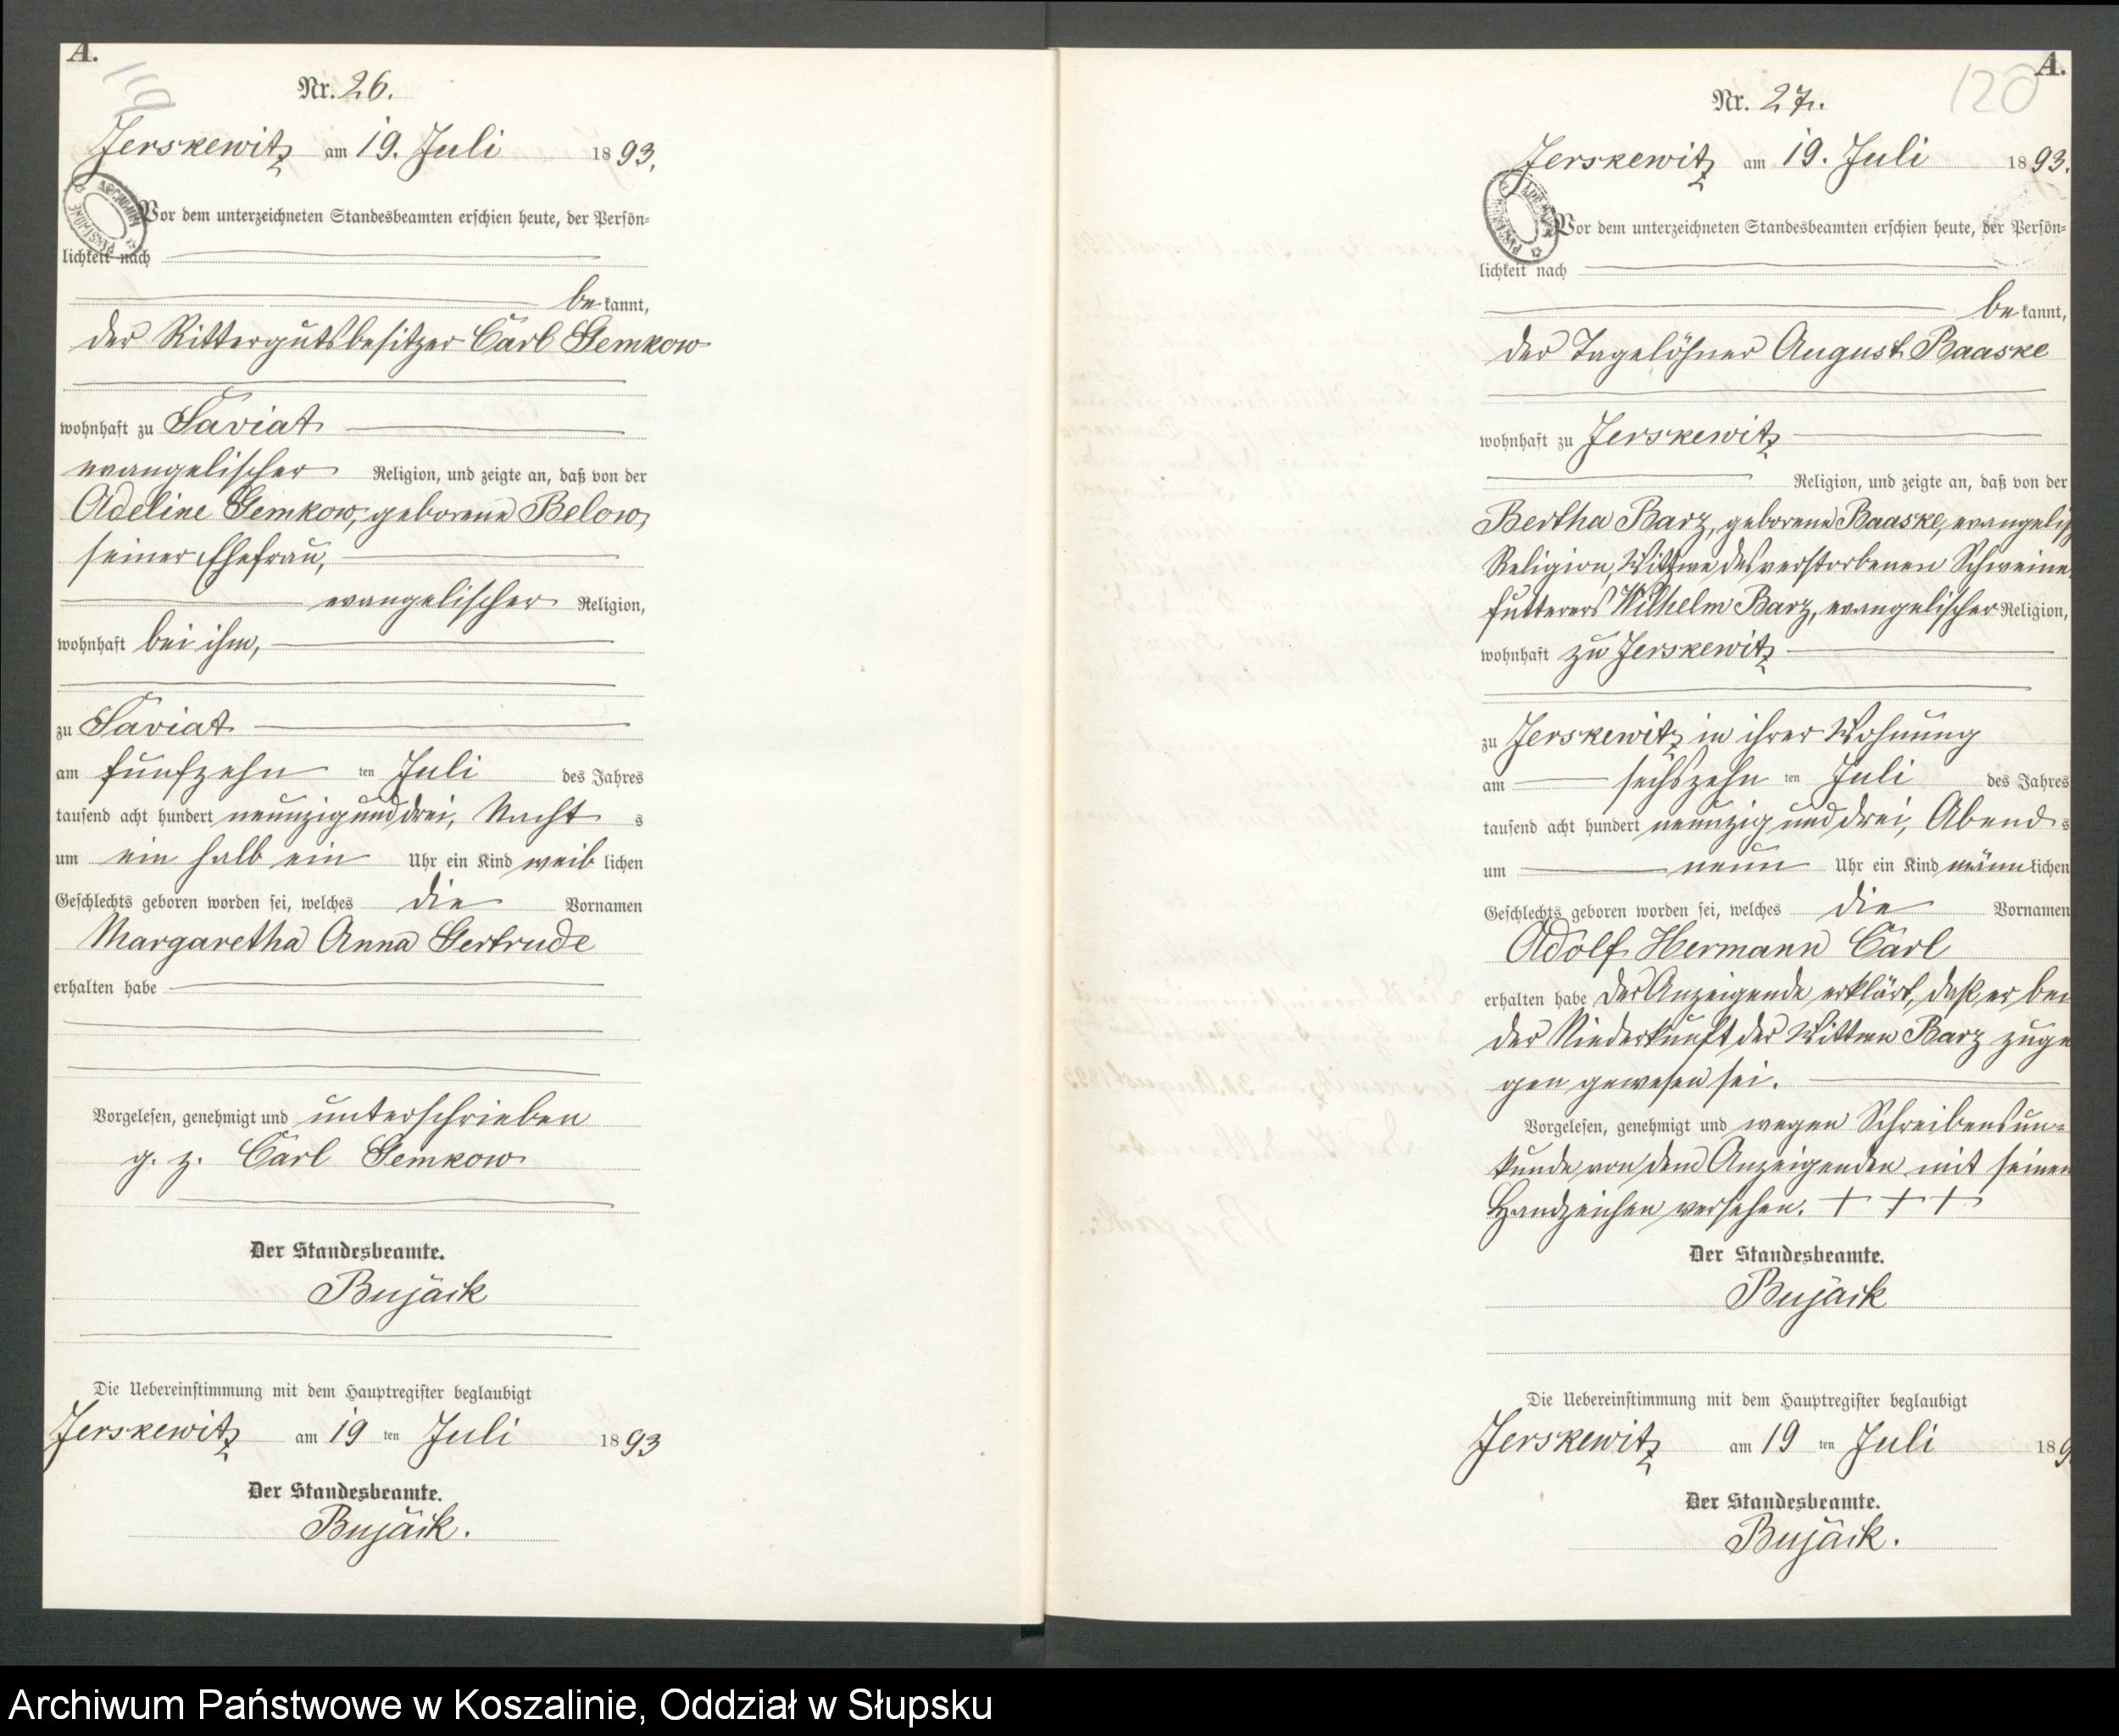 A.
119
Nr. 26.
Jerskewitz am 19. Juli 1893.
Vor dem unterzeichneten Standesbeamten erschien heute, der Persön-
lichkeit nach
bekannt,
der Rittergutsbesitzer Carl Gemkow
wohnhaft zu Saviat
evangelischer Religion, und zeigte an, daß von der
Adeline Gemkow, geborene Below,
seiner Ehefrau,
evangelischer Religion,
wohnhaft bei ihm,
zu Saviat
am fünfzehn ten Juli des Jahres
tausend acht hundert neunzig und drei, Nacht s
um ein halb ein Uhr ein Kind weiblichen
Geschlechts geboren worden sei, welches die Vornamen
Margaretha Anna Gertrude
erhalten habe
Vorgelesen, genehmigt und unterschrieben
g. z. Carl Gemkow
Der Standesbeamte.
Bujäck
Die Uebereinstimmung mit dem Hauptregister beglaubigt
Jerskewitz am 19 ten Juli 1893
Der Standesbeamte.
Bujäck.
A.
120
Nr. 27.
Jerskewitz am 19. Juli 1893.
Vor dem unterzeichneten Standesbeamten erschien heute, der Persön-
lichkeit nach
bekannt,
der Tagelöhner August Baaske
wohnhaft zu Jerskewitz
Religion, und zeigte an, daß von der
Bertha Barz, geborene Baaske, evangelisch
Religion, Wittwe des verstorbenen Schweine
futterers Wilhelm Barz, evangelischer Religion,
wohnhaft zu Jerskewitz
zu Jerskewitz in ihrer Wohnung
am sechszehn ten Juli des Jahres
tausend acht hundert neunzig und drei, Abend s
um neun Uhr ein Kind männlichen
Geschlechts geboren worden sei, welches die Vornamen
Adolf Hermann Carl
erhalten habe Der Anzeigende erklärt, daß er bei
der Niederkunft der Wittwe Barz zuge
gen gewesen sei.
Vorgelesen, genehmigt und wegen Schreibensun-
kunde von dem Anzeigenden mit seinen
Handzeichen versehen. + + +
Der Standesbeamte.
Bujäck
Die Uebereinstimmung mit dem Hauptregister beglaubigt
Jerskewitz am 19 ten Juli 189
Der Standesbeamte.
Bujäck.
Archiwum Państwowe w Koszalinie, Oddział w Słupsku